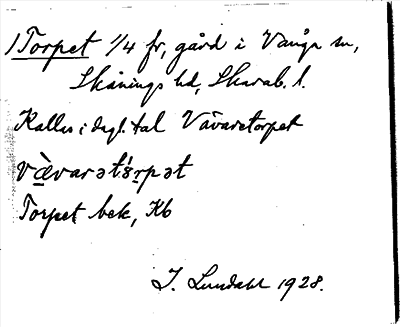 1 Torpet 1/4 fr, gård i Vångs sn,
Skånings hd, Skarab. l.
Kallas i dagl. tal Vävaretorpet
Torpet bek, Kb
I. Lundahl 1928.